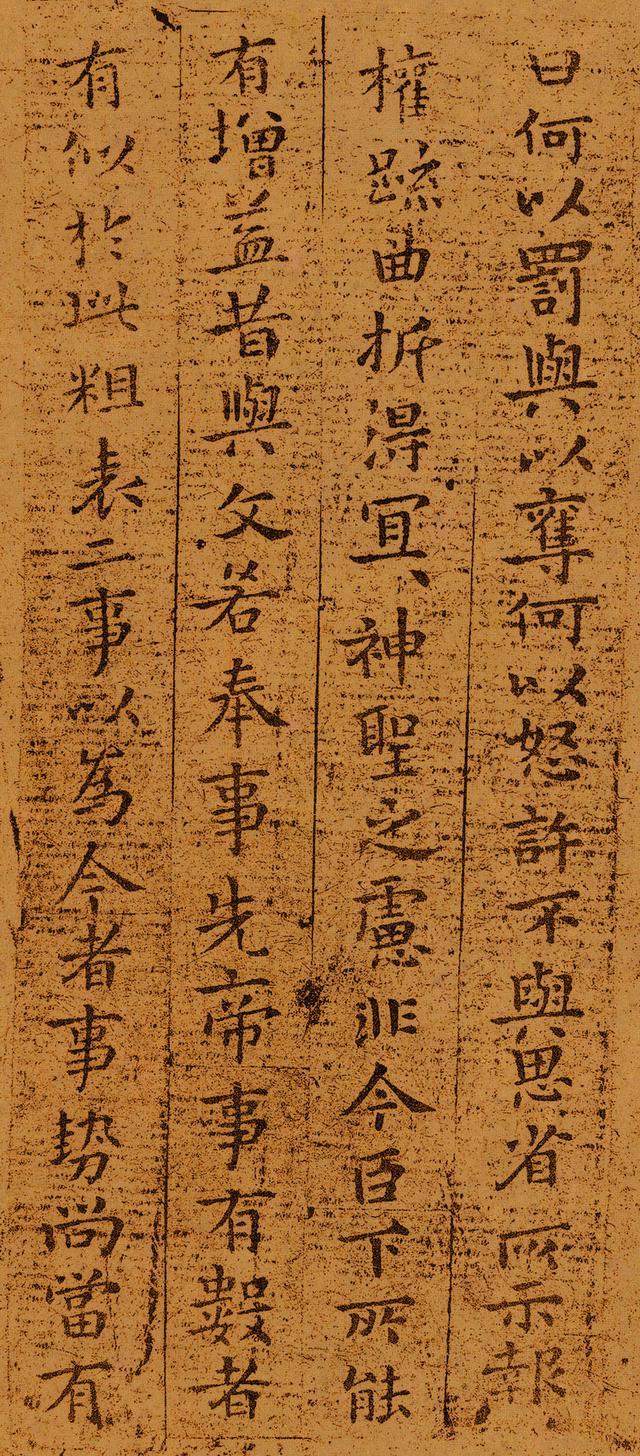 曰何以罰與以奪何以怒許不與思省所示報
權疏曲折得宜、神聖之慮非今臣下所能
有增益昔與文若奉事先帝事有數者
有似於此粗表二事以為今者事勢尚當有